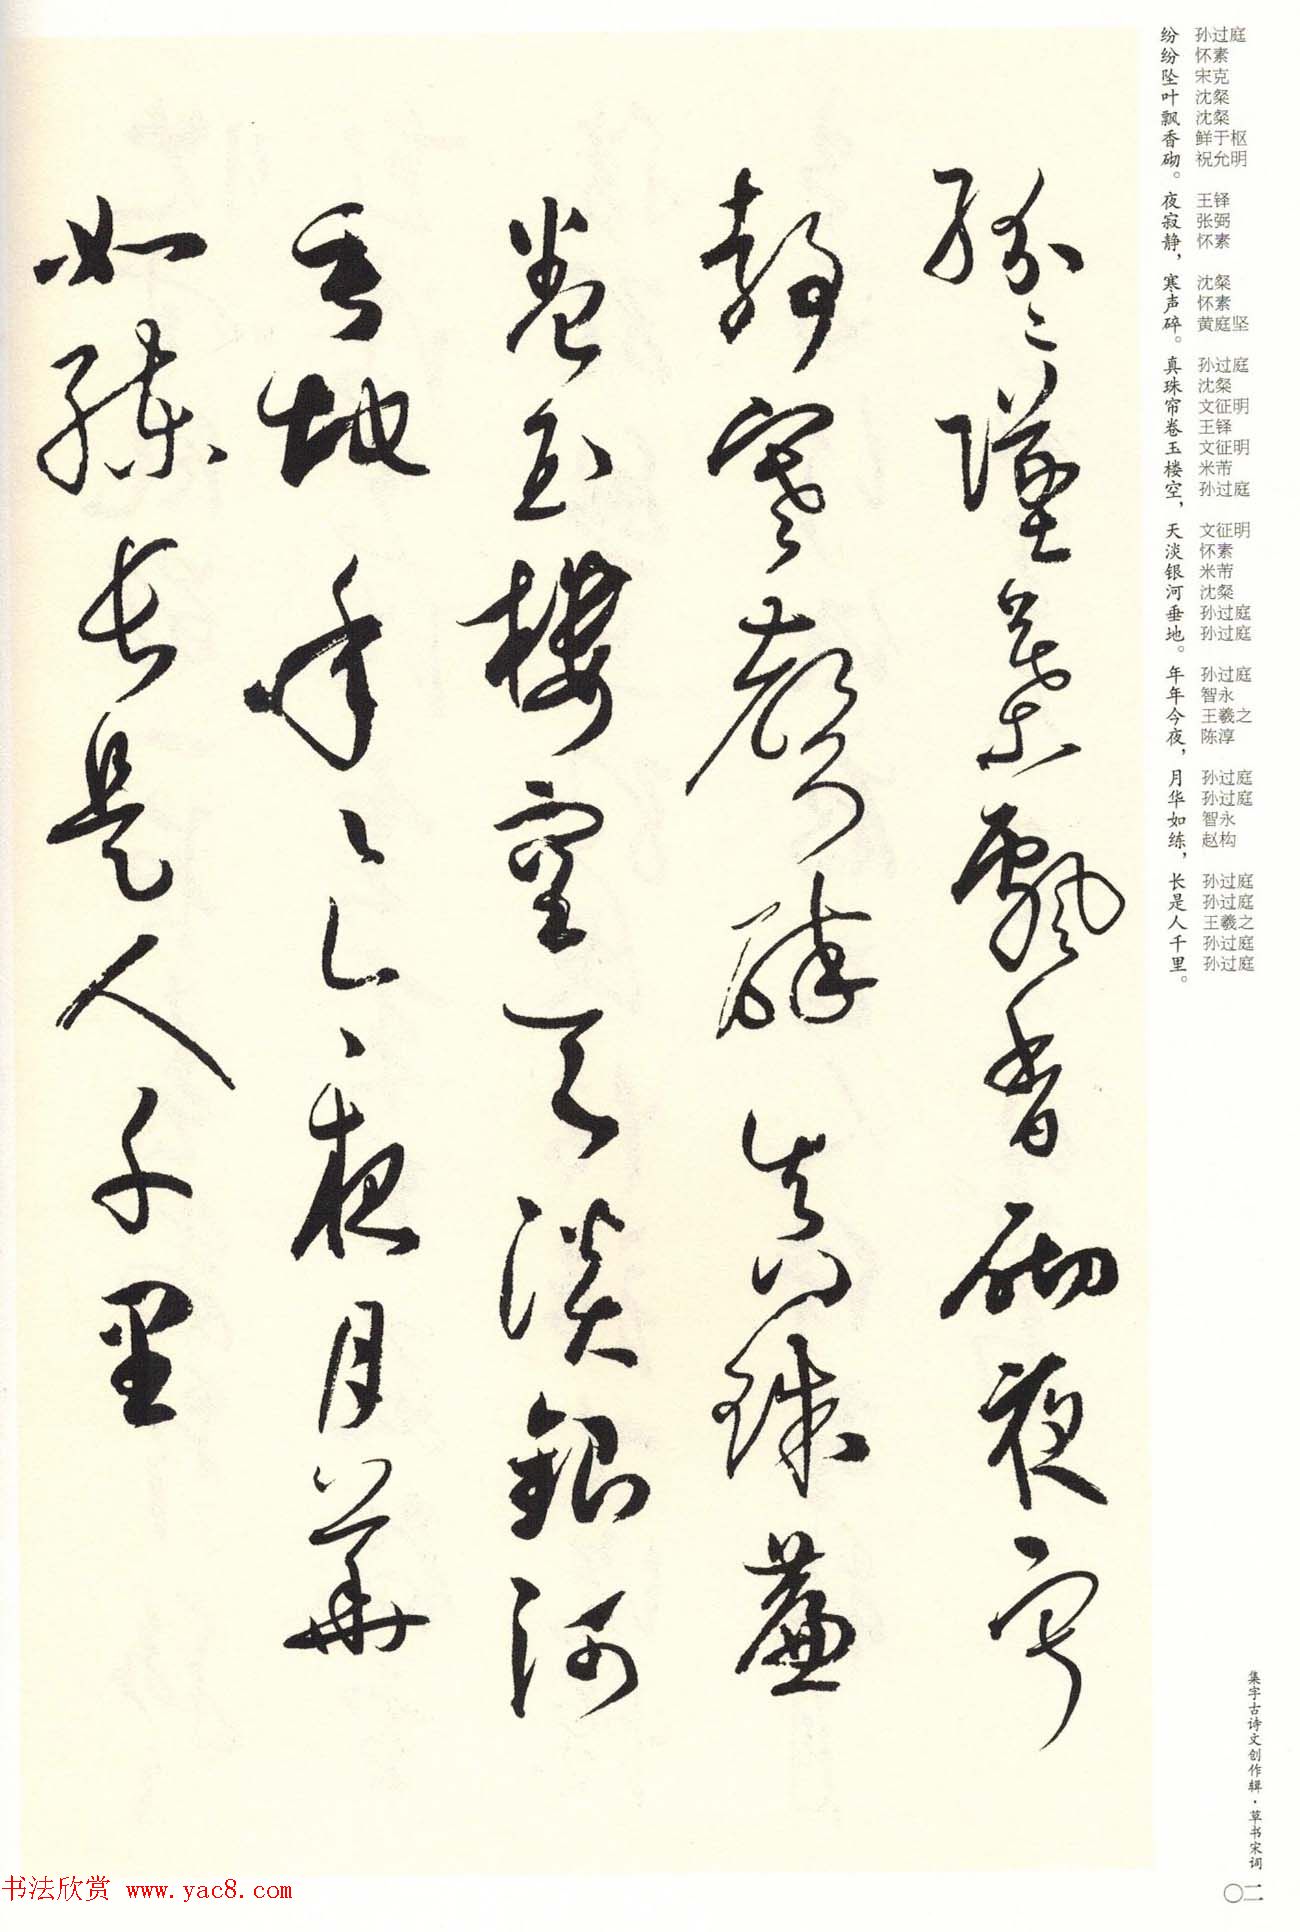 纷纷坠叶飘香砌。夜寂静，寒声碎。真珠帘卷玉楼空，天淡银河垂地。年年今夜，月华如练，长是人千里。
孙过庭 怀素 宋克 沈粲 沈粲 鲜于枢 祝允明 王铎 张弼 怀素 沈粲 怀素 黄庭坚 孙过庭 沈粲 文征明 王铎 文征明 米芾 孙过庭 文征明 怀素 米芾 沈粲 孙过庭 孙过庭 孙过庭 智永 王羲之 陈淳 孙过庭 孙过庭 智永 赵构 孙过庭 孙过庭 王羲之 孙过庭 孙过庭
纷〻坠叶飘香砌夜寂
静寒声碎真珠帘
卷玉楼空天淡银河
垂地年〻今夜月华
如练长是人千里
集字古诗文创作辑·草书宋词
〇二
书法欣赏 www.yac8.com